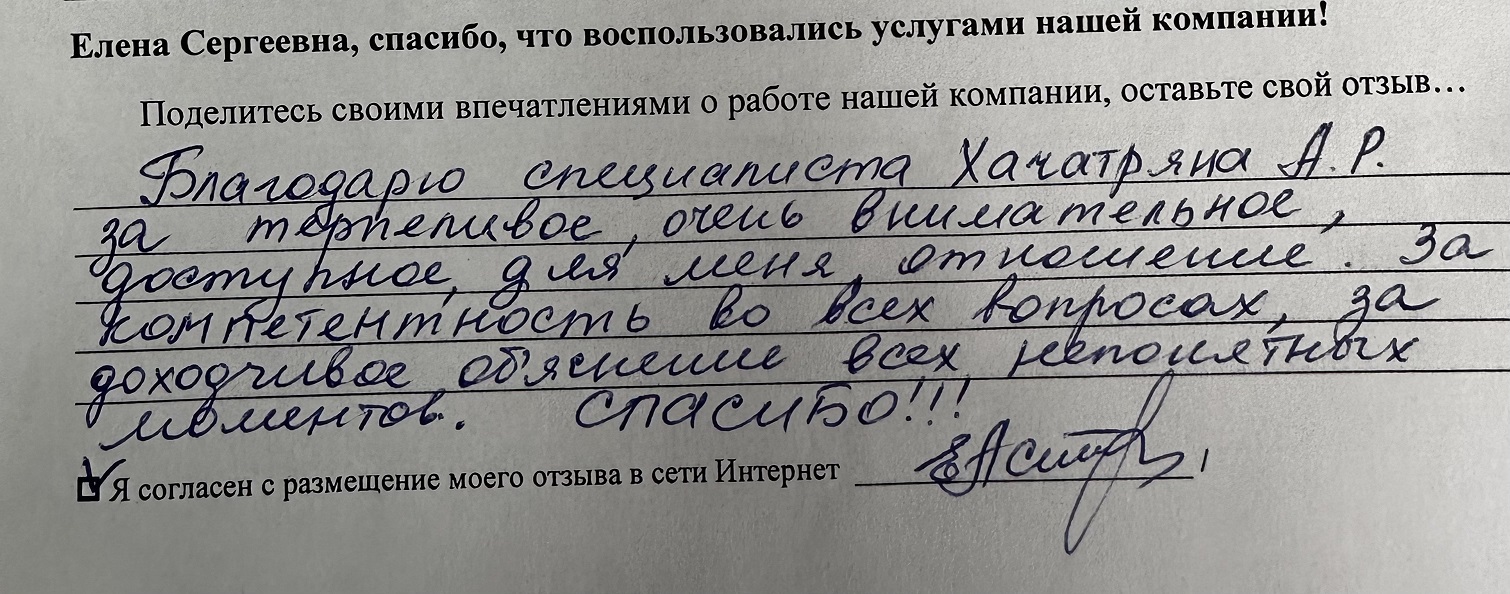 Елена Сергеевна, спасибо, что воспользовались услугами нашей компании!
Поделитесь своими впечатлениями о работе нашей компании, оставьте свой отзыв…
Благодарю специалиста Хачатряна А.Р.
за терпеливое, очень внимательное,
доступное, для меня, отношение. За
компетентность во всех вопросах, за
доходчивое объяснение всех непонятных
моментов. СПАСИБО!!!
Я согласен с размещение моего отзыва в сети Интернет